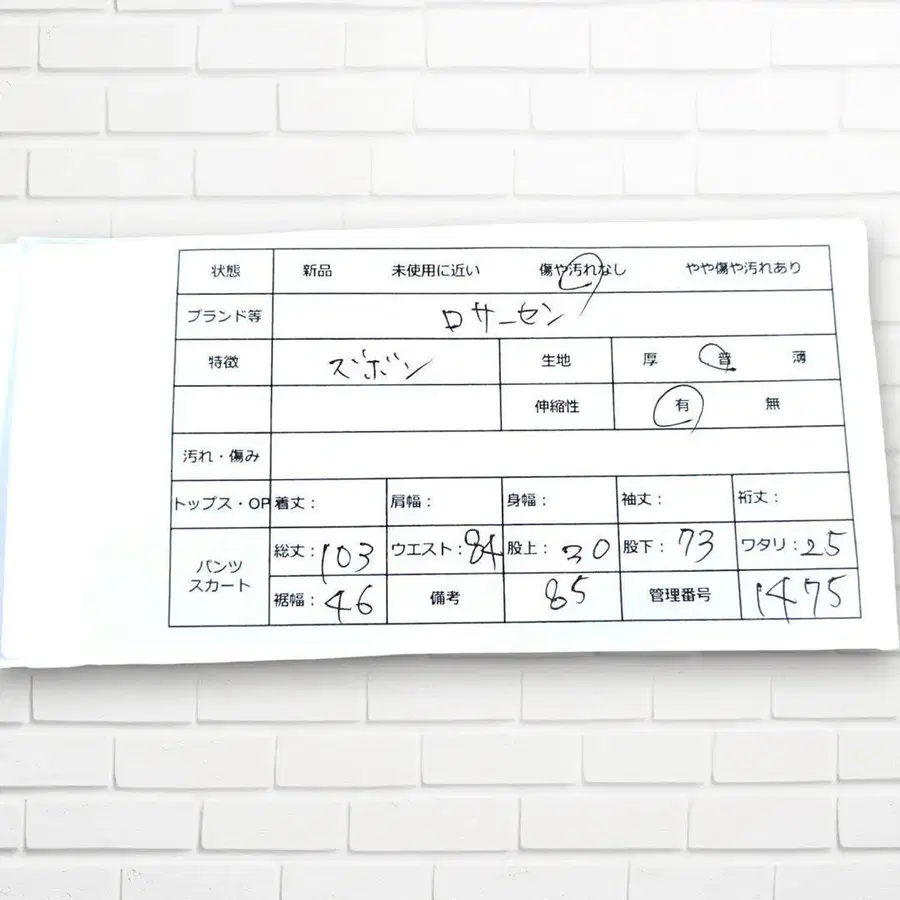 状態 新品 未使用に近い 傷や汚れなし やや傷や汚れあり
ブランド等 ロサーセン
特徴 ズボン 生地 厚 普 薄
伸縮性 有 無
汚れ・傷み
トップス・OP 着丈: 肩幅: 身幅: 袖丈: 裄丈:
パンツ スカート 総丈:103 ウエスト:84 股上:30 股下:73 ワタリ:25
裾幅:46 備考 85 管理番号 1475